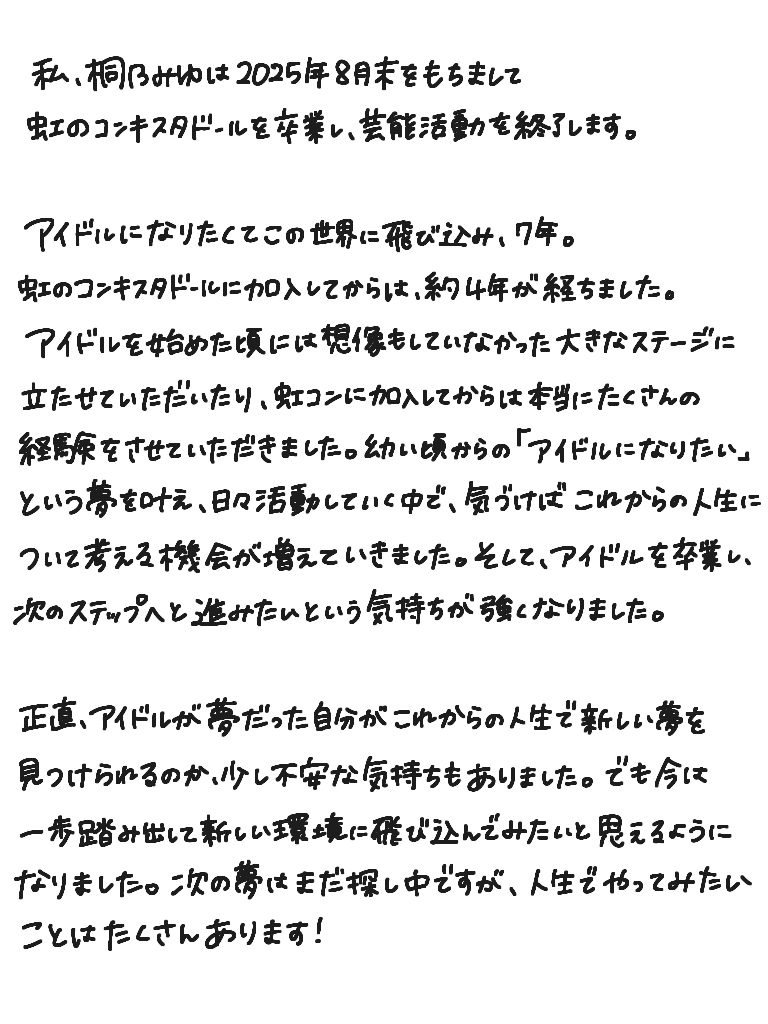 私、桐乃みゆは2025年8月末をもちまして
虹のコンキスタドールを卒業し、芸能活動を終了します。
アイドルになりたくてこの世界に飛び込み、7年。
虹のコンキスタドールに加入してからは、約4年が経ちました。
アイドルを始めた頃には想像もしていなかった大きなステージに
立たせていただいたり、虹コンに加入してからは本当にたくさんの
経験をさせていただきました。幼い頃からの「アイドルになりたい」
という夢を叶え、日々活動していく中で、気づけばこれからの人生に
ついて考える機会が増えていきました。そして、アイドルを卒業し、
次のステップへと進みたいという気持ちが強くなりました。
正直、アイドルが夢だった自分がこれからの人生で新しい夢を
見つけられるのか、少し不安な気持ちもありました。でも今は
一歩踏み出して新しい環境に飛び込んでみたいと思えるように
なりました。次の夢はまだ探し中ですが、人生でやってみたい
ことはたくさんあります!